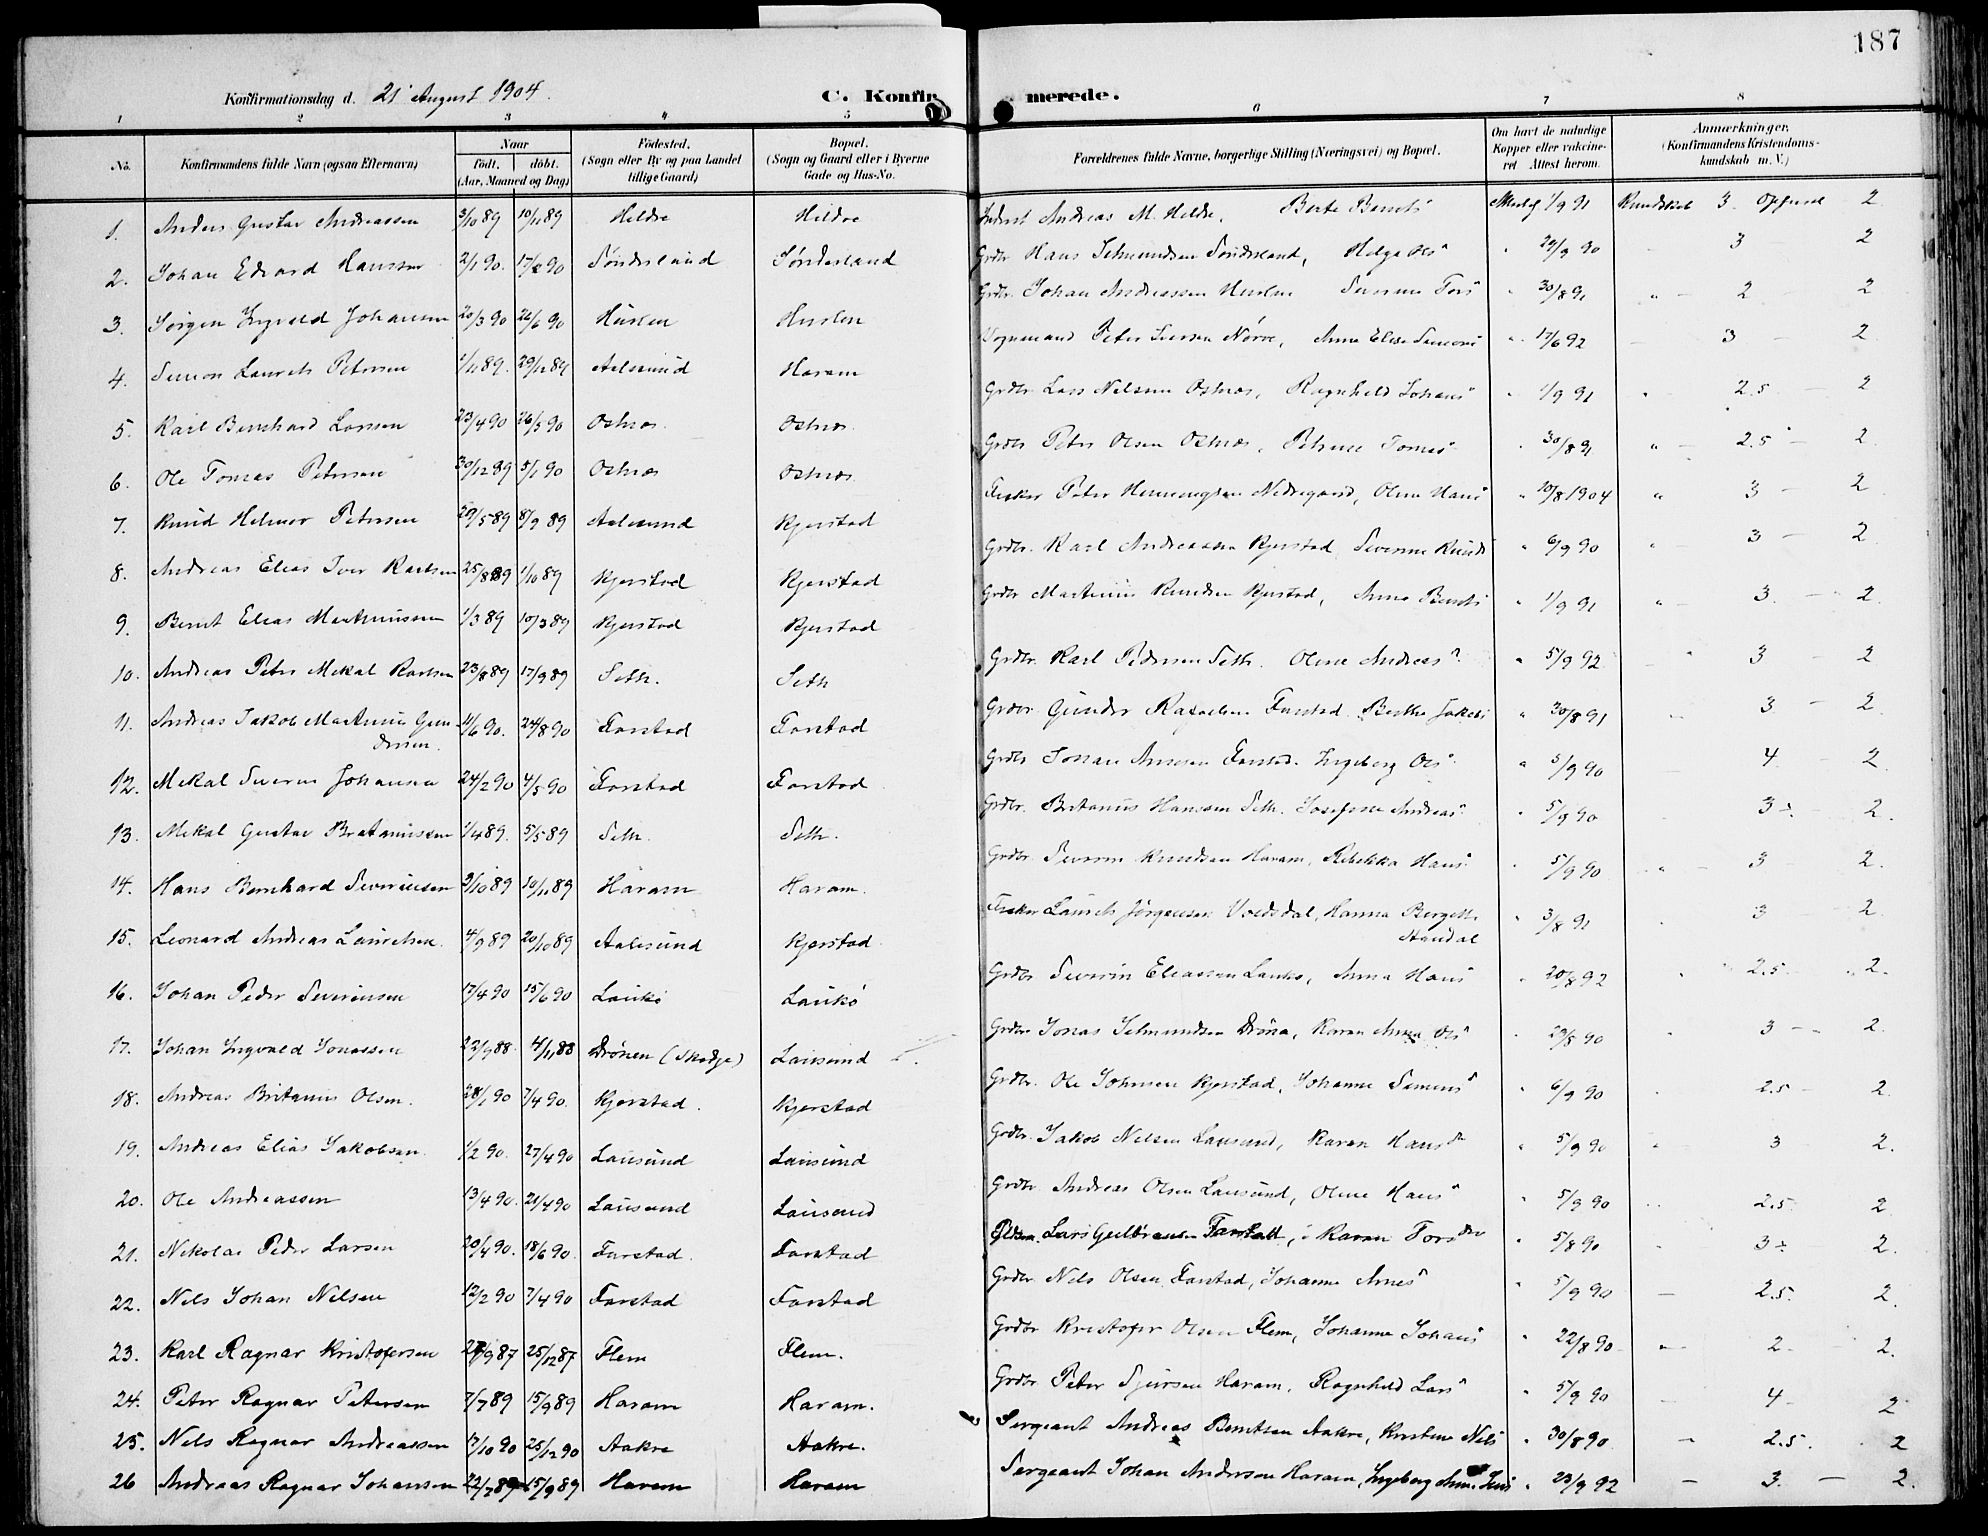 187
Konfirmationsdag d. 21 August 1904.
C. Konfir merede.
1 2 3 4 5 6 7 8
No. Konfirmandens fulde Navn (ogsaa Efternavn) Naar født. døbt. (Aar, Maaned og Dag) Fødested. (Sogn eller By og paa Landet tillige Gaard) Bopæl. (Sogn og Gaard eller i Byerne Gade og Hus-No. Forældrenes fulde Navne, borgerlige Stilling (Næringsvei) og Bopæl. Om havt de naturlige Kopper eller vaccineret Attest herom. Anmærkninger. (Konfirmandens Kristendomskundskab m. V.)
1. Anders Gustav Andreassen 3/10 89 10/11 89 Hildre Hildre Andreas M. Hildre, Berte Bernts 1/9 91 Kundskab 3 Opførsel 2.
2. Johan Edvard Hanssen 2/1 90. 17/2 90 Sønderland Sønderland Grdbr. Hans Selmundsen Sønderland, Helga Ols " 29/9 90 3 2
3. Jørgen Ingvald Johansen 20/3 90 26/6 90 Huslen Huslen Grdbr. Johan Andreassen Huslen Severine Tors " 30/8 91 " 2 2
4. Simon Laurits Petersen 1/11 89. 29/12 89 Aalesund Haram Vognmand Peter Iversen Nørve, Anna Elise Simons " 17/6 92 3 2
5. Karl Bernhard Larsen 23/4 90 26/5 90 Ostnes Ostnes Grdbr. Lars Nilsen Ostnes, Ragnhild Johans " 1/9 91 2.5 2
6. Ole Tomas Petersen 30/12 89 5/1 90 Ostnes Ostnes Grdbr Peter Olsen Ostnes, Petrine Tomas " 30/8 91 " 2.5 2.
7. Knud Helmer Petersen 29/5 89 8/9 89 Aalesund Kjerstad Fisker Peter Henningsen Nedregaard, Oline Hans " 10/8 1904 " 3 2
8. Andreas Elias Iver Karlsen 25/8 89 1/10 89 Kjerstad Kjerstad Grdbr. Karl Andreassen Kjerstad Severine Knuds " 6/9 90 " 3 2.
9. Bernt Elias Martinussen 1/3 89 10/3 89 Kjerstad Kjerstad Grdbr Martinus Knudsen Kjerstad, Anna Bernts " 1/9 91 " 3. 2.
10. Andreas Peter Mekal Karlsen 23/8 89 17/9 89 Seth. Seth Grdbr. Karl Pedersen Seth. Oline Andreas " 5/9 92 " 3 2
11. Andreas Jakob Martinus Gundersen. 11/6 90. 24/8 90 Farstad Farstad Grdbr. Gunder Rafaelsen Farstad. Berthe Jakobs " 30/8 91 3 2.
12. Mekal Severin Johansen 24/2 90 4/5 90 Farstad Farstad Grdbr Johan Farstad. Ingeborg Ols " 5/9 90 4 2.
13. Mekal Gustav Britanussen 1/4 89. 5/5 89 Seth. Seth. Grdbr. Britanus Hanssen Seth. Josefine Andreas " 5/9 90 3 ÷ 2.
14. Hans Bernhard Severinsen 9/10 89 10/11 89 Haram Haram. Grdbr. Severin Knudsen Haram, Rebekka Hans " 5/9 90 " 3 2.
15. Leonard Andreas Lauritsen. 4/9 89 20/10 89 Aalesund Kjerstad Fisker Laurits Jørgensen Voldsdal, Hanna Bergitte Standal " 3/8 91 3 2.
16. Johan Peder Severinsen 17/4 90 15/6 90 Laukø Laukø Grdbr Severin Eliassen Laukø, Anna Hans " 20/8 92 2.5. 2.
17. Johan Ingvald Jonassen 22/9 88. 4/11 88 Drønen (Skodje) Lausund Grdbr. Jonas Selmundsen Drøna, Karen Anna Ols " 29/8 90 3 2.
18. Andreas Britanus Olsen. 28/1 90 7/4 90. Kjerstad. Kjerstad Grdbr. Ole Johnsen Kjerstad, Johanne Simens " 6/9 90 2.5 2.
19. Andreas Elias Jakobsen. 1/2 90. 27/4 90 Lausund Lausund Grdbr. Jakob Nilsen Lausund, Karen Hans " 5/9 90 3 2.
20. Ole Andreassen 13/4 90. 21/4 90 Lausund Lausund Grdbr Andreas Olsen Lausund, Oline Hans " 5/9 90 2.5. 2
21. Nikolai Peder Larsen 20/4 90. 18/6 90. Farstad. Farstad Lars Gulbransen Farstad, Karen Tors " 5/8 90 3 ÷ 2.
22. Nils Johan Nilsen 12/2 90 7/4 90 Farstad Farstad Grdbr. Nils Olsen Farstad, Johanne Arnes " 5/9 90 2.5. 2.
23. Karl Ragnar Kristofersen 27/9 87 25/12 87 Flem Flem. Grdbr Kristofer Olsen Flem, Johanne Johans " 22/8 90 2 2.
24. Peter Ragnar Petersen 7/7 89 15/9 89 Haram Haram. Grdbr. Peter Sjursen Haram. Ragnhild Lars " 5/9 90 4 2
25. Nils Ragnar Andreassen 17/10 90 25/12 90 Aakre Aakre. Sergeant Andreas Berntsen Aakre, Kristine Nils " 30/8 90 2.5. 2
26 Andreas Ragnar Johansen 22/7 89 15/9 89 Haram Haram Sergeant Johan Andersen Haram, Ingeborg " 23/9 92 3. 2.